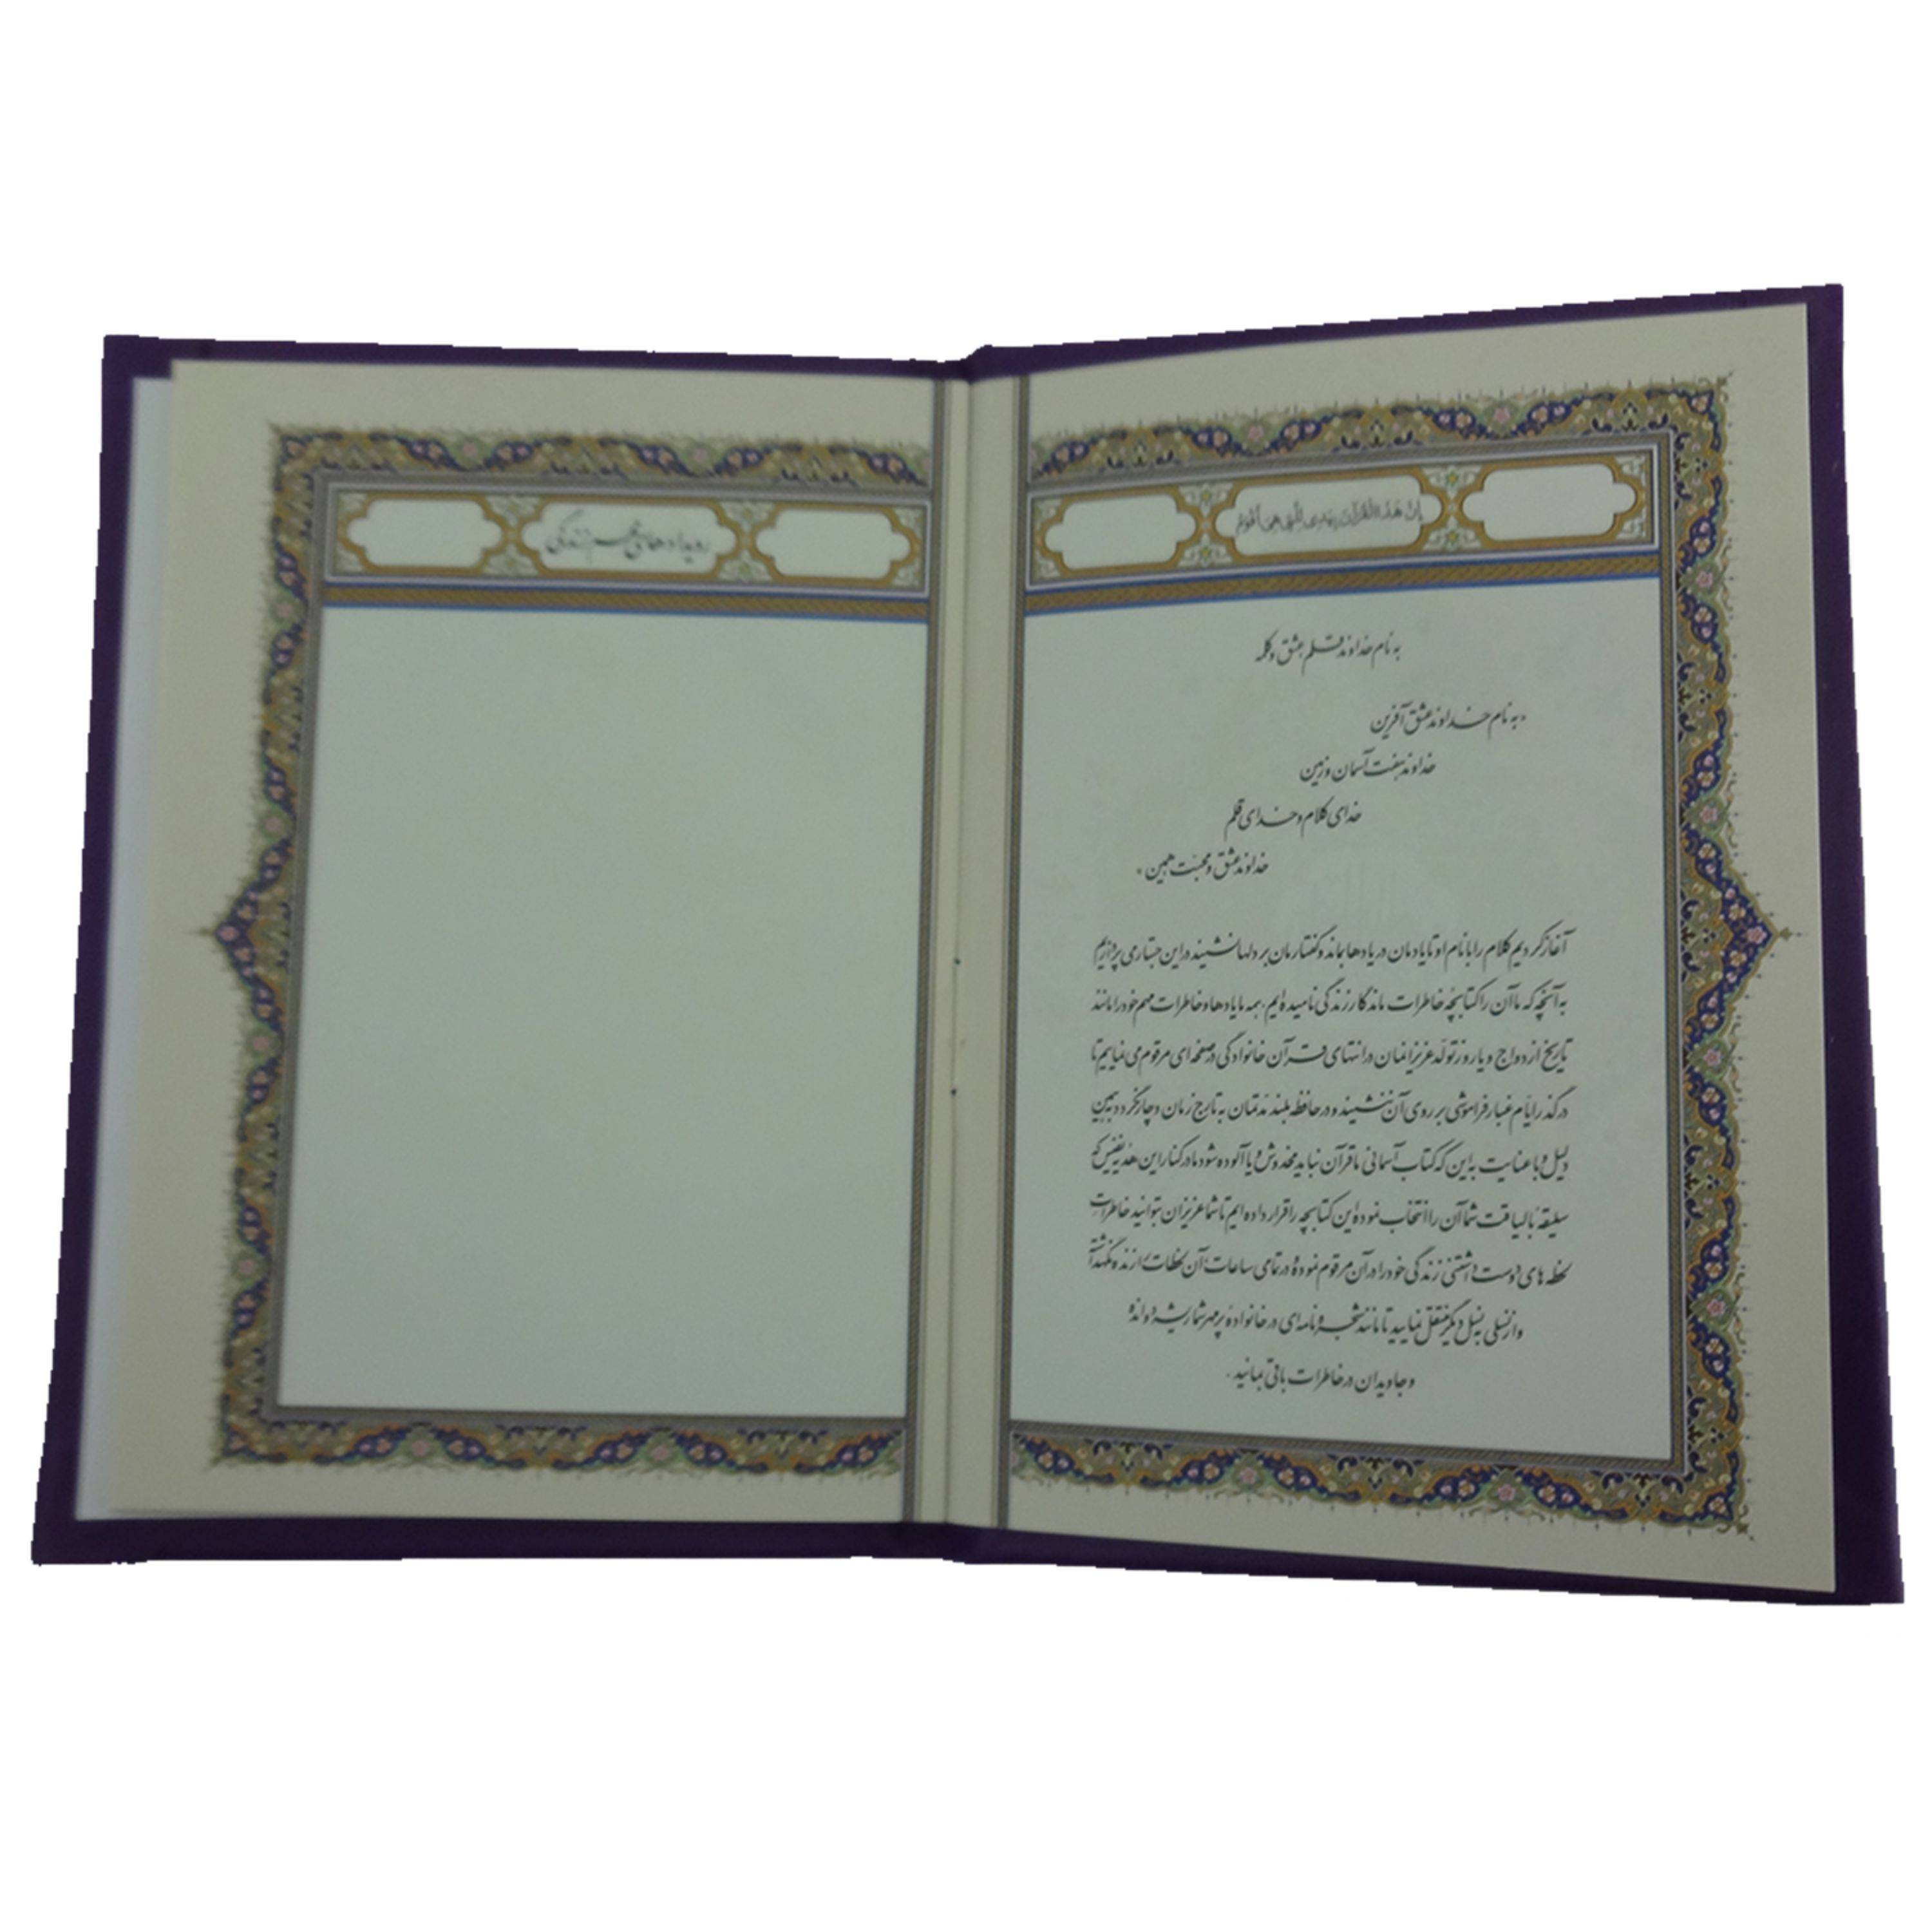 إِنَّ هَذَا الْقُرْآنَ يَهْدِي لِلَّتِي هِيَ أَقْوَمُ
به نام خداوند قلم، عشق و کلمه
«به نام خداوند عشق آفرین
خداوند هفت آسمان و زمین
خدای کلام و خدای قلم
خداوند عشق و محبت همین»
آغاز کردیم کلام را با نام او تا یادمان در یادها بماند و گفتارمان بر دلها نشیند در این جستار می پردازیم
به آنچه که ما آن را کتابچه خاطرات ماندگار زندگی نامیده ایم، همه ما یادها و خاطرات مهم خود را مانند
تاریخ ازدواج و یا روز تولد عزیزانمان در انتهای قرآن خانوادگی در صفحه ای مرقوم می نماییم تا
در گذر ایام غبار فراموشی بر روی آن ننشیند و در حافظه بلند مدتمان به تاراج زمان دچار نگردد به همین
دلیل و با عنایت به این که کتاب آسمانی ما قرآن نباید مخدوش و یا آلوده شود ما در کنار این هدیه نفیس که
سلیقه با لیاقت شما آن را انتخاب نموده این کتابچه را قرار داده ایم تا شما عزیزان بتوانید خاطرات
لحظه های دوست داشتنی زندگی خود را در آن مرقوم نموده و در تمامی ساعات، آن لحظات را زنده نگهداشته
و از نسلی به نسل دیگر منتقل نمایید تا مانند شجره نامه ای در خانواده پر مهر شما ریشه دوانده
و جاویدان در خاطرات باقی بمانید.
رویدادهای مهم زندگی